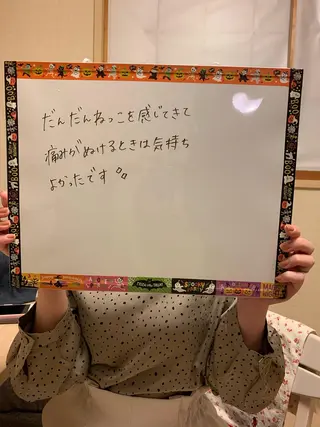 だんだんねっこを感じてきて
痛みがぬけるときは気持ち
よかったです